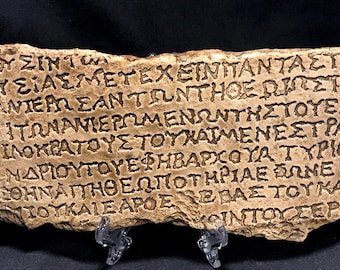 ΥΣΙΝΤΩΝ
ΥΣΙΑΣΜΕΤΕΧΕΙΝΠΑΝΤΑΣΤ
ΑΝΙΕΡΩΣΑΝΤΩΝΤΗΘΕΩ
ΙΤΩΝΑΝΙΕΡΩΜΕΝΩΝΤΗΣΤΟΥΕ
ΙΝΟΚΡΑΤΟΥΣΤΟΥΚΑΙΜΕΝΕΣΤΡ
ΝΔΡΙΟΥΤΟΥΕΦΗΒΑΡΧΟΥΔΥΤΥΡΙ
ΘΗΝΑΠΗΘΕΩΠΟΤΗΡΙΑΕΦΩΝΕ
ΤΟΥΚΑΙΣΑΡΟΣΣΕΒΑΣΤΟΥΚΑ
ΚΟΙΝΤΟΥΣΕΡ